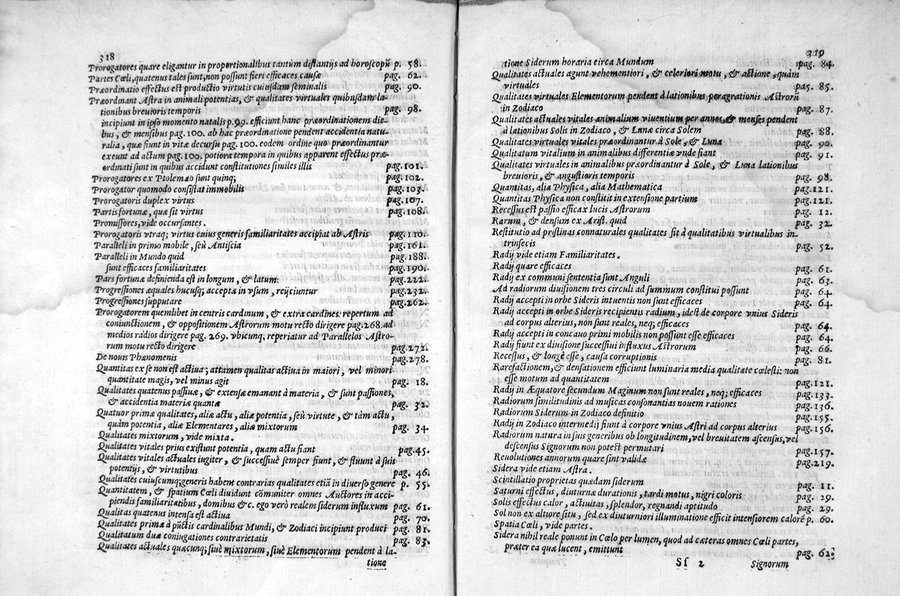 318
Prorogatores quare eligantur in proportionalibus tantùm distantijs ad horoscopũ p. 58.
Partes Cœli, quatenus tales sunt, non possunt fieri efficaces causæ pag. 62.
Præordinatio effectus est productio virtutis cuiusdam seminalis pag. 90.
Præordinant Astra in animali potentias, & qualitates virtuales quibusdam la-
tionibus breuioris temporis pag. 98.
incipiunt in ipso momento natalis p. 99. efficiunt hanc præordinationem die-
bus, & mensibus pag. 100. ab hac præordinatione pendent accidentia natu-
ralia, quæ fiunt in vitæ decursu pag. 100. eodem ordine quo præordinantur
exeunt ad actum pag. 100. potiora tempora in quibus apparent effectus præ-
ordinati sunt in quibus accidunt constitutiones similes illis pag. 101.
Prorogatores ex Ptolemæo sunt quinq; pag. 102.
Prorogator quomodo consistat immobilis pag. 103.
Prorogatoris duplex virtus pag. 107.
Partis fortunæ, quæ sit virtus pag. 108.
Promissores, vide occursantes.
Prorogatoris vtraq; virtus cuius generis familiaritates accipiat ab Astris pag. 110.
Paralleli in primo mobile, seù Antiscia pag. 161.
Paralleli in Mundo quid pag. 188.
sunt efficaces familiaritates pag. 190.
Pars fortunæ definienda est in longum, & latum pag. 222.
Progressiones æquales hucusq; acceptæ in vsum, reijciuntur pag. 232.
Progressiones supputare pag. 262.
Prorogatorem quemlibet in centris cardinum, & extra cardines repertum ad
coniunctionem, & oppositionem Astrorum motu recto dirigere pag. 268. ad
medios radios dirigere pag. 269. vbicunq; reperiatur ad Parallelos Astro-
rum motu recto dirigere pag. 272.
De nouis Phænomenis pag. 278.
Quantitas ex se non est actiua; attamen qualitas actiua in maiori, vel minori
quantitate magis, vel minus agit pag. 18.
Qualitates quatenus passiuæ, & extensæ emanant à materia, & sunt passiones,
& accidentia materiæ quantæ pag. 32.
Quatuor primæ qualitates, aliæ actu, aliæ potentia, seù virtute, & tàm actu,
quàm potentia, aliæ Elementares, aliæ mixtorum pag. 34.
Qualitates mixtorum, vide mixta.
Qualitates vitales prius existunt potentia, quam actu fiant pag. 45.
Qualitates vitales actuales iugiter, & successiuè semper fiunt, & fluunt à suis
potentijs, & virtutibus pag. 46.
Qualitates cuiuscumq; generis habent contrarias qualitates etiã in diuerso genere p. 55.
Quantitatem, & spatium Cœli diuidunt cõmuniter omnes Auctores in acci-
piendis familiaritatibus, domibus &c. ego verò realem siderum influxum pag. 61.
Qualitas quatenus intensa est actiua pag. 70.
Qualitates primæ à pũctis cardinalibus Mundi, & Zodiaci incipiunt produci pag. 81.
Qualitatum duæ coniugationes contrarietatis pag. 83.
Qualitates actuales quæcunq; siuè mixtorum, siuè Elementorum pendent à la-
tione
319
tione Siderum horaria circa Mundum pag. 84.
Qualitates actuales agunt vehementiori, & celeriori motu, & actione, quàm
virtuales pag. 85.
Qualitates virtuales Elementorum pendent à lationibus peragrationis Astroris
in Zodiaco pag. 87.
Qualitates actuales vitales animalium viuentium per annos, & menses pendent
à lationibus Solis in Zodiaco, & Lunæ circa Solem pag. 88.
Qualitates virtuales vitales præordinantur à Sole, & Luna pag. 90.
Qualitatum vitalium in animalibus differentiæ vnde fiant pag. 91.
Qualitates virtuales in animalibus præordinantur à Sole, & Luna lationibus
breuioris, & angustioris temporis pag. 98.
Quantitas, alia Physica, alia Mathematica pag. 121.
Quantitas Physica non consistit in extensione partium pag. 121.
Recessus est passio efficax lucis Astrorum pag. 12.
Rarum, & densum ex Arist. quid pag. 32.
Restitutio ad pristinas connaturales qualitates fit à qualitatibus virtualibus in-
trinsecis pag. 52.
Radij vide etiam Familiaritates.
Radij quare efficaces pag. 61.
Radij ex communi sententia sunt Anguli pag. 63.
Ad radiorum diuisionem tres circuli ad summum constitui possunt pag. 64.
Radij accepti in orbe Sideris intuentis non sunt efficaces pag. 64.
Radij accepti in orbe Sideris recipientis radium, idest de corpore vnius Sideris
ad corpus alterius, non sunt reales, neq; efficaces pag. 64.
Radij accepti in concauo primi mobilis non possunt esse efficaces pag. 64.
Radij fiunt ex diuisione successiui influxus Astrorum pag. 66.
Recessus, & longè esse, causa corruptionis pag. 81.
Rarefactionem, & densationem efficiunt luminaria media qualitate cœlesti: non
esse motum ad quantitatem pag. 121.
Radij in Æquatore secundum Maginum non sunt reales, neq; efficaces pag. 133.
Radiorum similitudinis ad musicas consonantias nouem rationes pag. 136.
Radiorum Siderum in Zodiaco definitio pag. 155.
Radij in Zodiaco intermedij fiunt à corpore vnius Astri ad corpus alterius pag. 156.
Radiorum natura in ijus generibus ob longitudinem, vel breuitatem ascensus, vel
descensus Signorum non potest permutari pag. 157.
Reuolutiones annorum quare sint validæ pag. 219.
Sidera vide etiam Astra.
Scintillatio proprietas quædam siderum pag. 11.
Saturni effectus, diuturna durationis, tardi motus, nigri coloris pag. 29.
Solis effectus calor, actiuitas, splendor, regnandi aptitudo pag. 29.
Sol non ex altiore situ, sed ex diuturniori illuminatione efficit intensiorem calorẽ p. 60.
Spatia Cœli, vide partes.
Sidera nihil reale ponunt in Cœlo per lumen, quod ad cæteras omnes Cœli partes,
præter ea quæ lucent, emittunt pag. 62.
Ss 2 Signorum